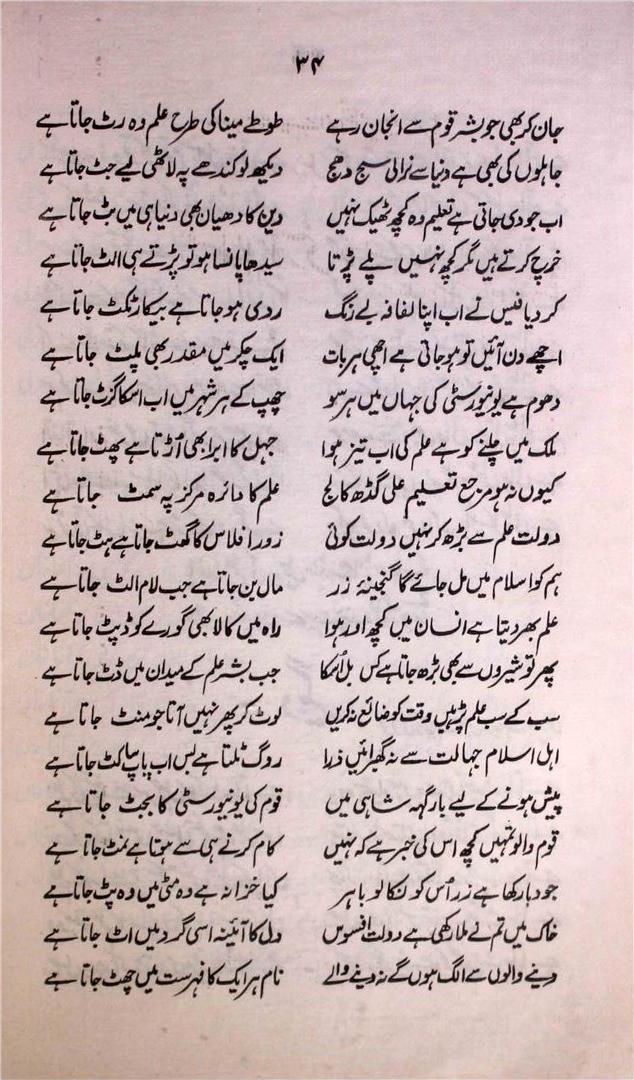 ۳۴
جان کر بھی جو بشر قوم سے انجان رہے طوطے مینا کی طرح علم وہ رٹ جاتا ہے
جاہلوں کی بھی ہے دنیا سے نرالی سج دھج دیکھ لو کندھے پہ لاٹھی لیے جٹ جاتا ہے
اب جو دی جاتی ہے تعلیم وہ کچھ ٹھیک نہیں دین کا دھیان بھی دنیا ہی میں بٹ جاتا ہے
خرچ کرتے ہیں مگر کچھ نہیں پلے پڑتا سیدھا پانسا ہو تو پڑتے ہی الٹ جاتا ہے
کر دیا فیس نے اب اپنا لفافہ بے رنگ ردی ہو جاتا ہے بیکار ٹکٹ جاتا ہے
اچھے دن آئیں تو ہو جاتی ہے اچھی ہر بات ایک چکر میں مقدر بھی پلٹ جاتا ہے
دھوم ہے یونیورسٹی کی جہاں میں ہر سو چھپ کے ہر شہر میں اب اسکا گزٹ جاتا ہے
ملک میں چلنے کو ہے علم کی اب تیز ہوا جہل کا ابر ابھی اُڑتا ہے پھٹ جاتا ہے
کیوں نہ ہو مرجع تعلیم علی گڈھ کالج علم کا دائرہ مرکز پہ سمٹ جاتا ہے
دولت علم سے بڑھ کر نہیں دولت کوئی زور افلاس کا گھٹ جاتا ہے ہٹ جاتا ہے
ہم کو اسلام میں مل جائے گا گنجینۂ زر مال بن جاتا ہے جب لام الٹ جاتا ہے
علم بھر دیتا ہے انسان میں کچھ اور ہوا راہ میں کالا بھی گورے کو ڈپٹ جاتا ہے
پھر تو شیروں سے بھی بڑھ جاتا ہے کس بل اُسکا جب بشر علم کے میدان میں ڈٹ جاتا ہے
سب کے سب علم پڑہیں وقت کو ضائع نہ کریں لوٹ کر پھر نہیں آتا جو منٹ جاتا ہے
اہل اسلام جہالت سے نہ گھبرائیں ذرا روگ ٹلتا ہے بس اب پاپ کٹ جاتا ہے
پیش ہونے کے لیے بارگہہ شاہی میں قوم کی یونیورسٹی کا بجٹ جاتا ہے
قوم والو تمہیں کچھ اس کی خبر ہے کہ نہیں کام کرنے ہی سے ہوتا ہے نمٹ جاتا ہے
جو دبا رکھا ہے زر اُس کو نکالو باہر کیا خزانہ ہے وہ مٹی میں وہ پٹ جاتا ہے
خاک میں تم نے ملا رکھی ہے دولت افسوس دل کا آئینہ اسی گرد میں اٹ جاتا ہے
دینے والوں سے الگ ہوں گے نہ دینے والے نام ہر ایک کا فہرست میں چھٹ جاتا ہے